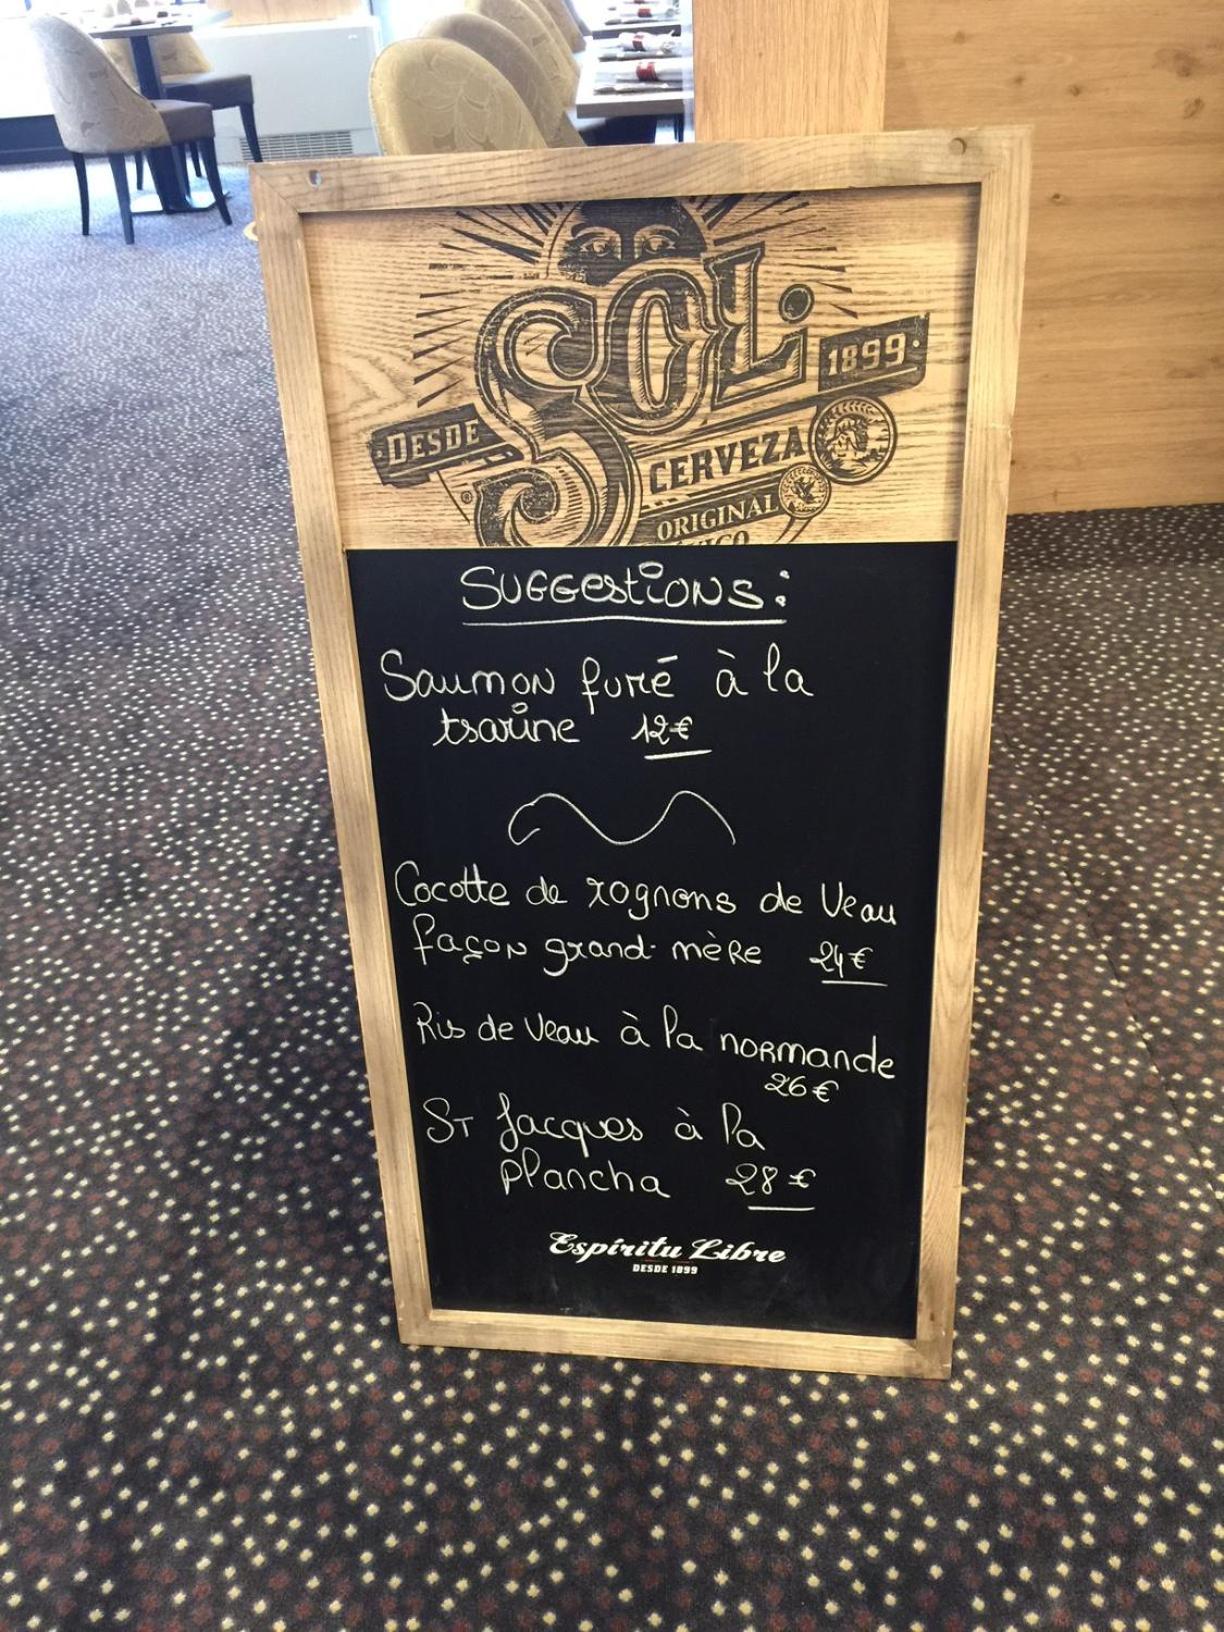 SOL
DESDE
1899
CERVEZA
ORIGINAL
SUGGESTIONS:
Saumon fumé à la
tsarine 12€
Cocotte de rognons de Veau
façon grand-mère 24€
Ris de Veau à la normande
26€
ST Jacques à la
plancha 28€
Espíritu Libre
DESDE 1899